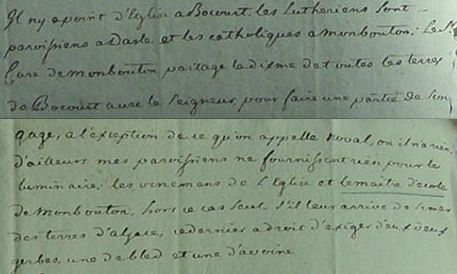 Il ny a point d'Eglise a Bocourt. les Lutheriens sont
paroissiens a Dasle et les catholiques a monbouton; Le Sr
Curé de monbouton partage la dixme de toutes les terres
de Bocourt avec le Seigneur, pour faire une partie de son
gage, a l'exception de ce qu'on appelle noval, ou il n'a rien,
d'ailleurs mes paroissiens ne fournissent rien pour le
luminaire, les ornemens de L'Eglise et le maitre d'ecole
de Monbouton, hors ce cas seul. S'il leur arrive de semer
des terres d'alsace, ce dernier a droit d'exiger d'eux deux
gerbes, une de bled et une d'avoine